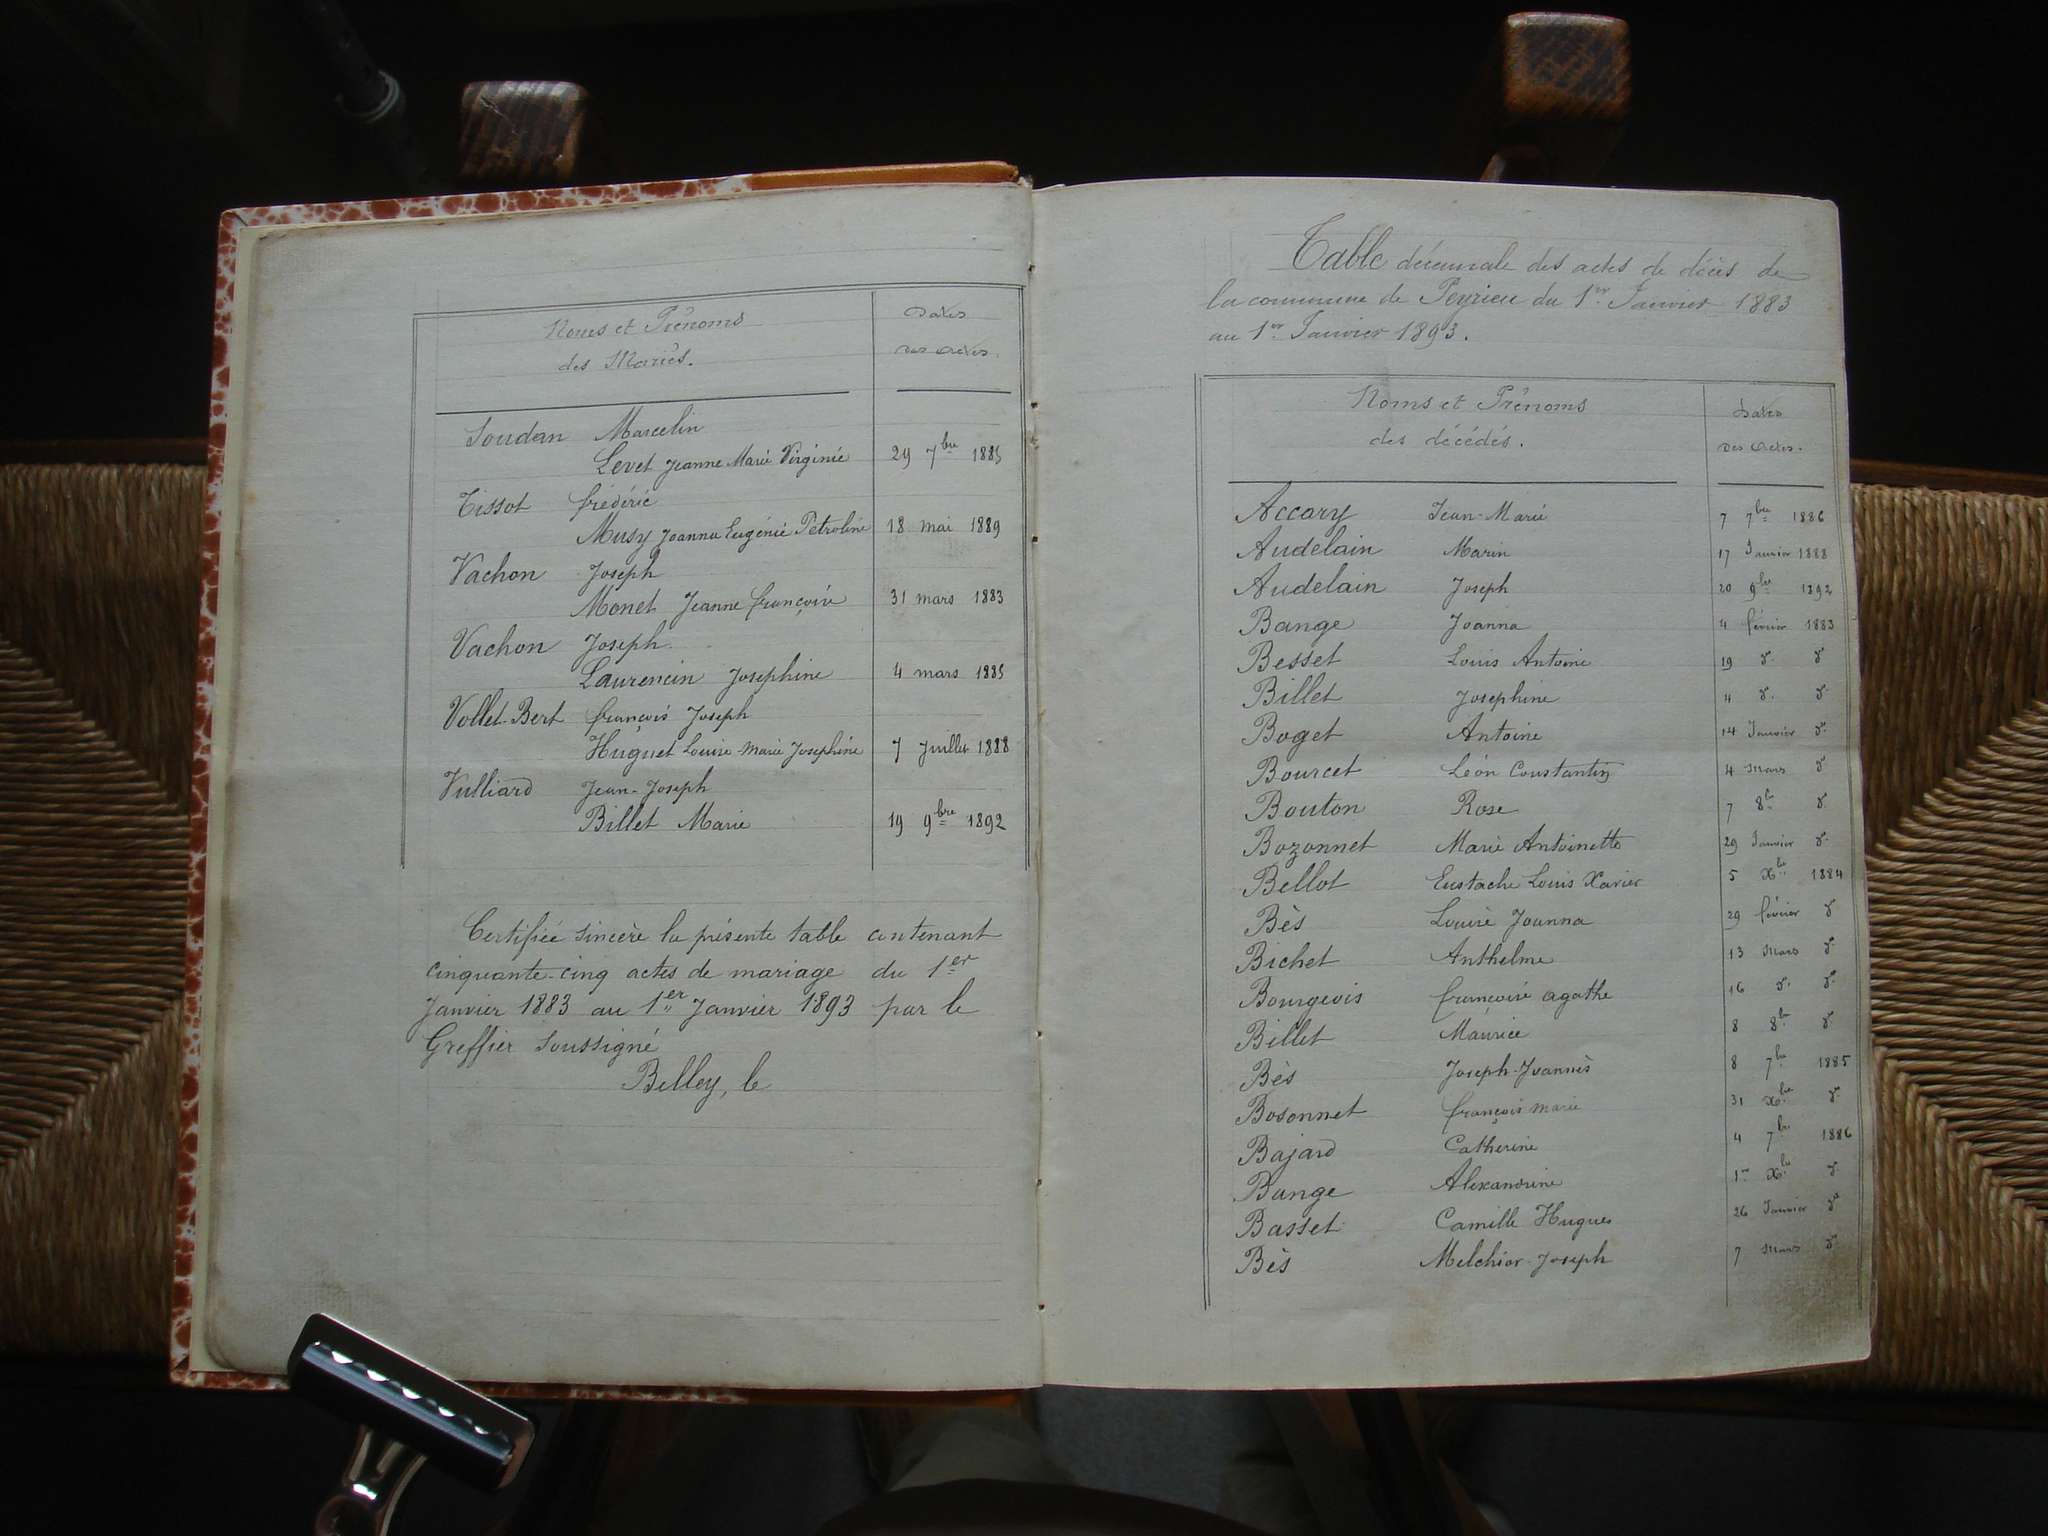 Noms et Prénoms
des Mariés.
Dates
des actes.
Soudan Marcelin
Levet Jeanne Marie Virginie 29 7bre 1885
Tissot frédéric
Musy Joanna Eugénie Pétroline 18 mai 1889
Vachon Joseph
Monet Jeanne françoise 31 mars 1883
Vachon Joseph
Laurencin Joséphine 4 mars 1885
Vollet-Bert françois Joseph
Huguet Louise Marie Joséphine 7 Juillet 1888
Vulliard Jean-Joseph
Billet Marie 19 9bre 1892
Certifiée sincère la présente table contenant
cinquante-cinq actes de mariage du 1er
Janvier 1883 au 1er Janvier 1893 par le
Greffier soussigné
Belley, le
Table décennale des actes de décès de
la commune de Peyrieu du 1er Janvier 1883
au 1er Janvier 1893.
Noms et Prénoms
des décédés.
Dates
des actes.
Accary Jean-Marie 7 7bre 1886
Audelain Marin 17 Janvier 1888
Audelain Joseph 20 9bre 1892
Bange Joanna 4 février 1883
Besset Louis Antoine 19 do do
Billet Joséphine 4 do do
Boget Antoine 14 Janvier do
Bourcet Léon Constantin 4 Mars do
Bouton Rose 7 8bre do
Bozonnet Marie Antoinette 29 Janvier do
Bellot Eustache Louis Xavier 5 Xbre 1884
Bès Louise Joanna 29 février do
Bichet Anthelme 13 Mars do
Bourgeois françoise agathe 16 do do
Billet Maurice 8 8bre do
Bès Joseph-Joannès 8 7bre 1885
Bosonnet françois marie 31 Xbre do
Bajard Catherine 4 7bre 1886
Bange Alexandrine 1er Xbre do
Basset Camille Hugues 26 Janvier do
Bès Melchior-Joseph 7 Mars do